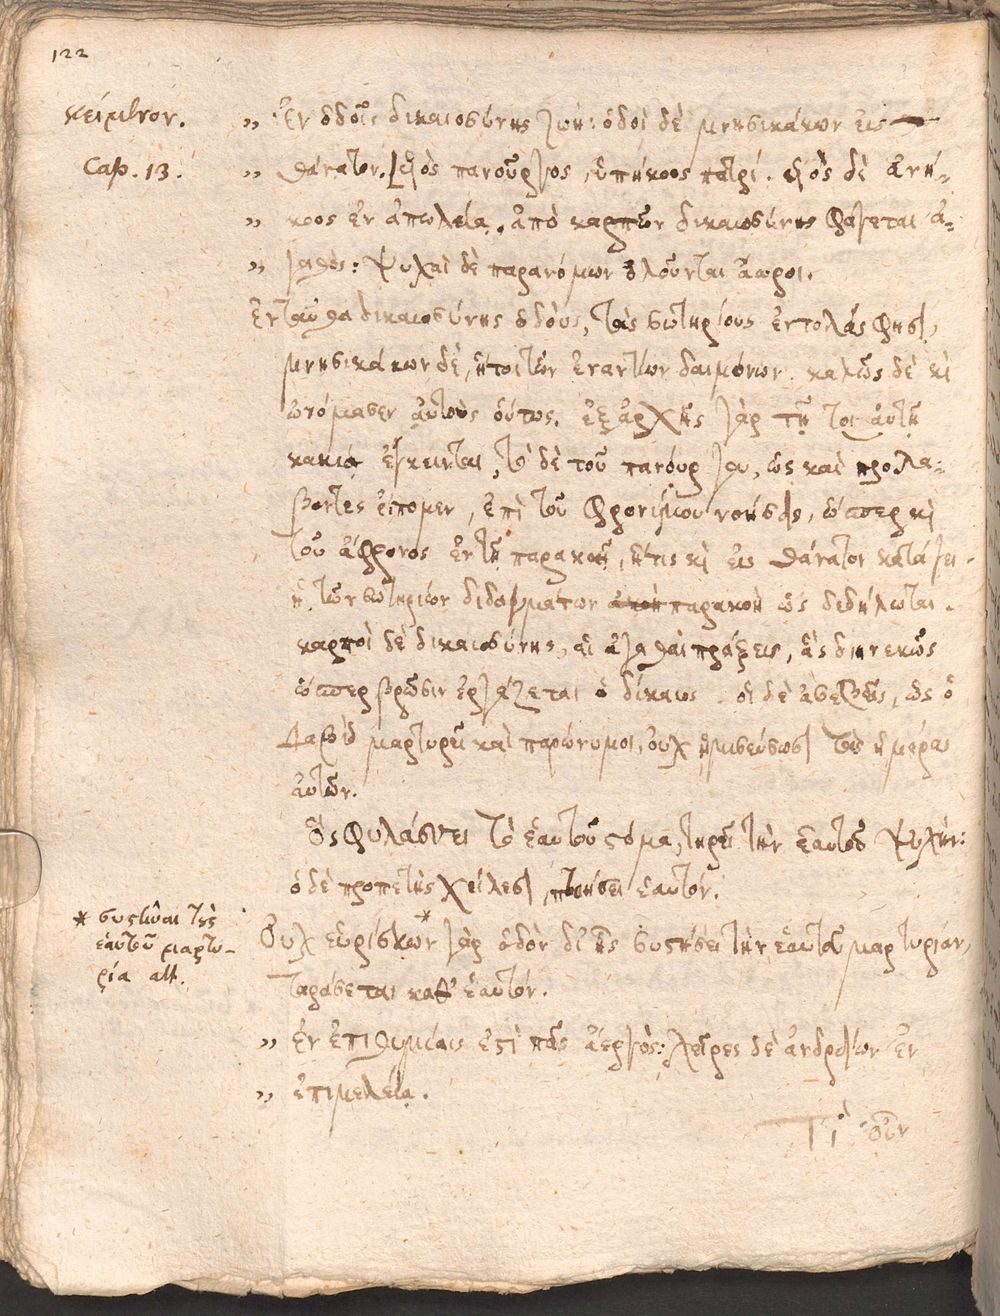 122
κείμενον.
Cap. 13.
„ Ἐν ὁδοῖς δικαιοσύνης ζωή: ὁδοὶ δὲ μνησικάκων εἰς
„ θάνατον. [υἱὸς πανοῦργος, ὑπήκοος πατρί. υἱὸς δὲ ἀνή-
„ κοος ἐν ἀπωλεία. ἀπὸ καρπῶν δικαιοσύνης φάγεται ἀ-
„ γαθός: ψυχαὶ δὲ παρανόμων ὀλοῦνται ἄωροι.
Ἐνταῦθα δικαιοσύνης ὁδοὺς, τὰς σωτηρίους ἐντολάς φησι,
μνησικάκων δὲ, ἤτοι τῶν ἐναντίων δαιμόνων. καλῶς δὲ κὶ
ὠνόμασεν αὐτοὺς οὕτως. ἐξ ἀρχῆς γὰρ τῇ τοιαύτῃ
κακία ἔγκεινται, τὸ δὲ τοῦ πανούργου, ὡς καὶ προλα-
βόντες εἴπομεν, ἐπὶ τοῦ φρονίμου νοήσεις, ὥσπερ κὶ
τοῦ ἄφρονος ἐν τῇ παρακοῇ, ἥτις κὶ εἰς θάνατον κατάγει.
ἡ τῶν σωτηρίων διδαγμάτων παρακοὴ ὡς δεδήλωται.
καρποὶ δὲ δικαιοσύνης, αἱ ἀγαθαὶ πράξεις, ἃς διηνεκῶς
ὥσπερ βρῶσιν ἐργάζεται ὁ δίκαιος. οἱ δὲ ἀσεβεῖς, ὡς ὁ
Δαβὶδ μαρτυρεῖ καὶ παρώνυμοι, οὐχ ἡμισεύσωσι τὰς ἡμέρας
αὐτῶν.
Ὃς φυλάσσει τὸ ἑαυτοῦ στόμα, τηρεῖ τὴν ἑαυτοῦ ψυχήν:
ὁ δὲ προπετὴς χείλεσι, πτοήσει ἑαυτόν.
* συστῆναι τῆς
ἑαυτοῦ μαρτυ-
ρία alt.
Οὐχ εὑρίσκων* γὰρ ὁδὸν δι᾽ ἧς συστήσει τὴν ἑαυτοῦ μαρτυρίαν,
ταράσεται καθ᾽ ἑαυτόν.
„ ἐν ἐπιθυμίαις ἐστὶ πᾶς ἀεργός: χεῖρες δὲ ἀνδρείων ἐν
„ ἐπιμελεία.
Τί οὖν